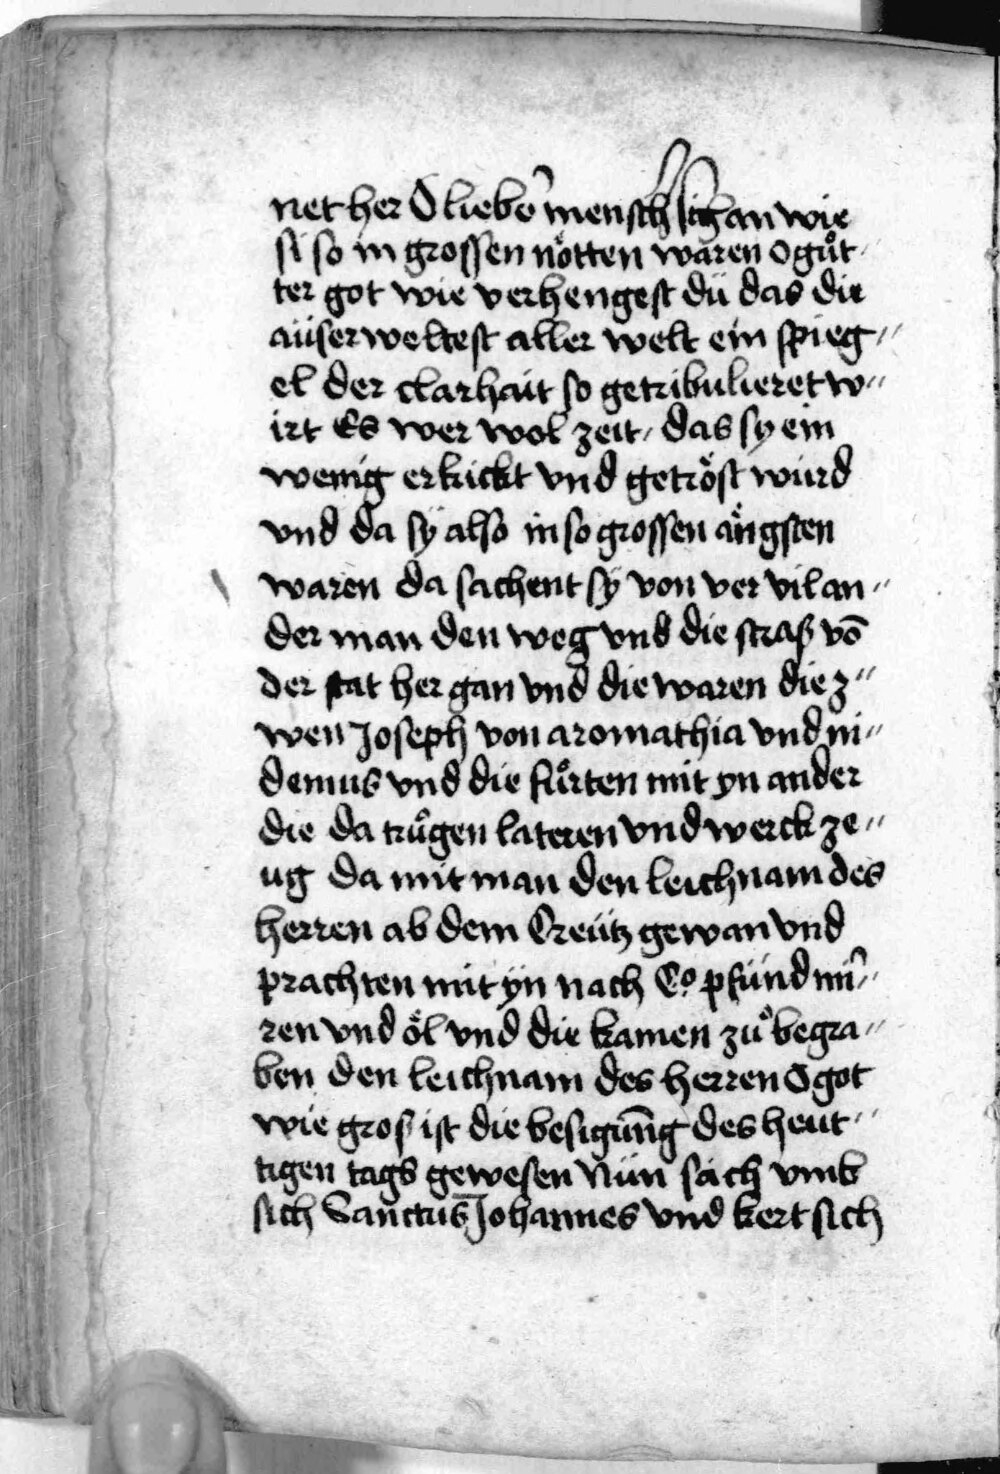 net her O lieber̉ mensch sich an wie
si so in grossen nötten waren O guͦt⸗
ter got wie verhengest dü das die
aüserweltest aller welt ein spieg⸗
el der clarhait so getribulieret w⸗
irt Es wer wol zeit / das sy ein
wenig erkickt vnd getröst würd
vnd da sÿ also in so grossen ängsten
waren da sachent sÿ von ver vil an⸗
der man den weg vnd die straß vō
der stat her gan vnd die waren die z⸗
wen Joseph von aromathia vnd ni⸗
demus vnd die fuͦrten mit yn ander
die da truͦgen lateren vnd werck ze⸗
ug da mit man den leichnam des
herren ab dem Creütz gewan vnd
prachten mit ÿn nach C° pfünd mir̉⸗
ren vnd öl vnd die kamen zuͦ begra⸗
ben den leichnam des herren O got
wie groß ist die besigün̄g des heut⸗
tigen tags gewesen Nün sach vmb
sich Sanctus Johannes vnd kert sich